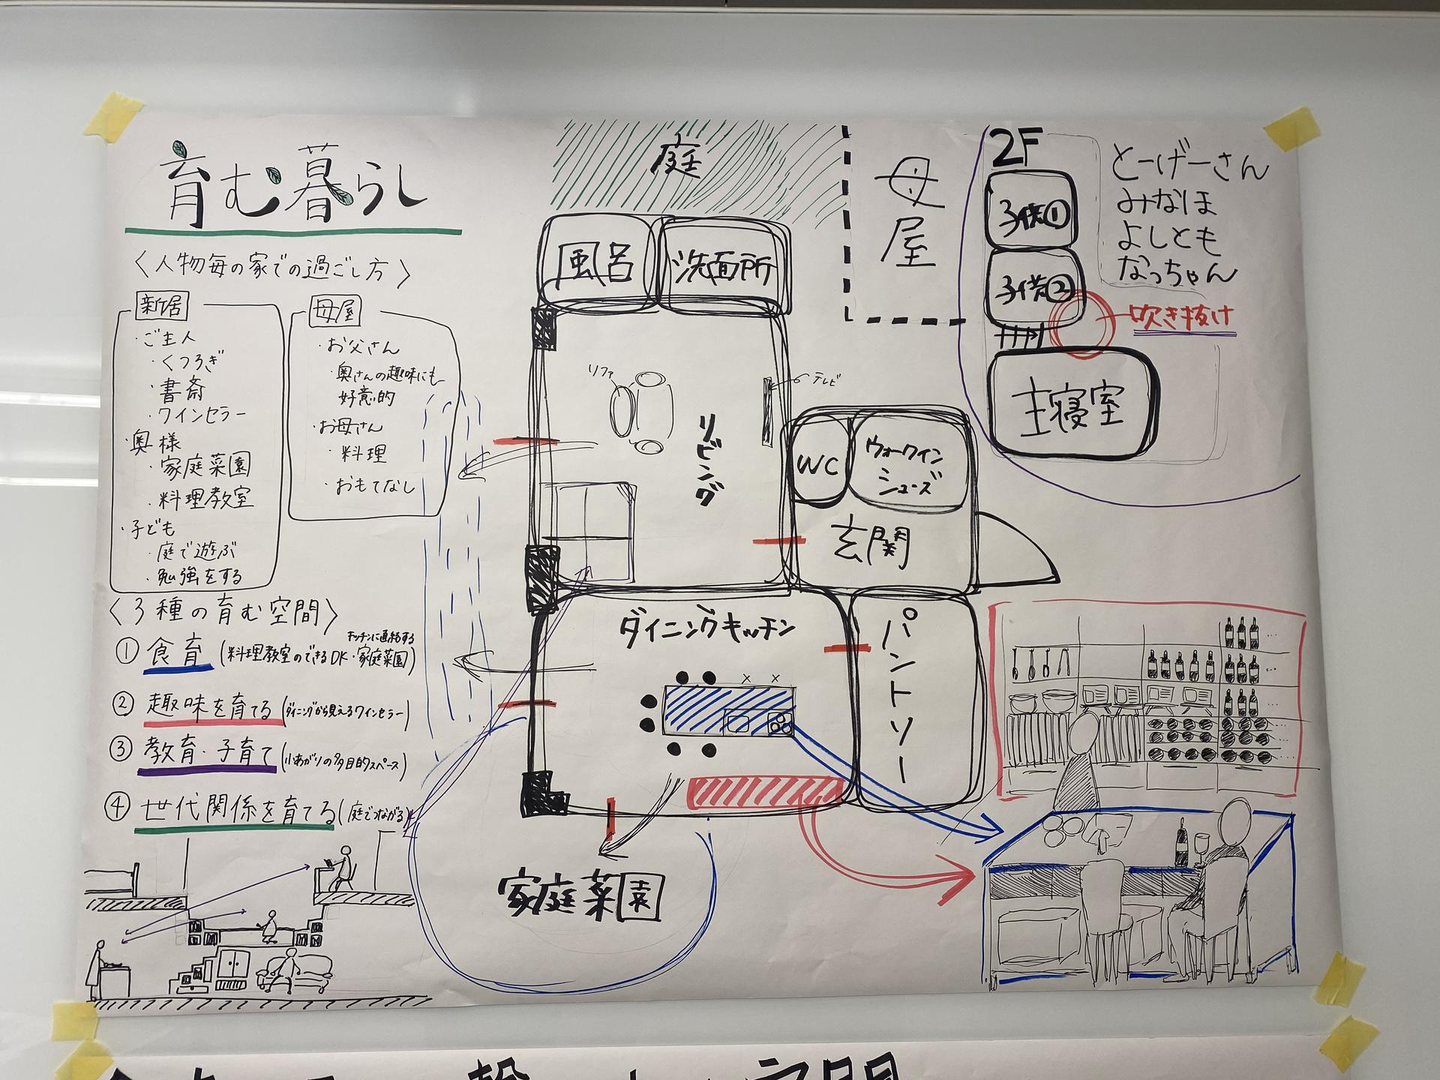 育む暮らし
〈人物毎の家での過ごし方〉
新居
・ご主人
・くつろぎ
・書斎
・ワインセラー
・奥様
・家庭菜園
・料理教室
・子ども
・庭で遊ぶ
・勉強をする
母屋
・お父さん
・奥さんの趣味にも
好意的
・お母さん
・料理
・おもてなし
〈3種の育む空間〉
① 食育 (料理教室のできるDK・家庭菜園)
キッチンに直結する
② 趣味を育てる (ダイニングから見えるワインセラー)
③ 教育・子育て (小あがりの多目的スペース)
④ 世代関係を育てる (庭でつながる)
庭
風呂
洗面所
ソファ
テレビ
リビング
WC
ウォークイン
シューズ
玄関
ダイニングキッチン
パントリー
家庭菜園
母屋
2F
子供①
子供②
吹き抜け
主寝室
とーげーさん
みなほ
よしとも
なっちゃん